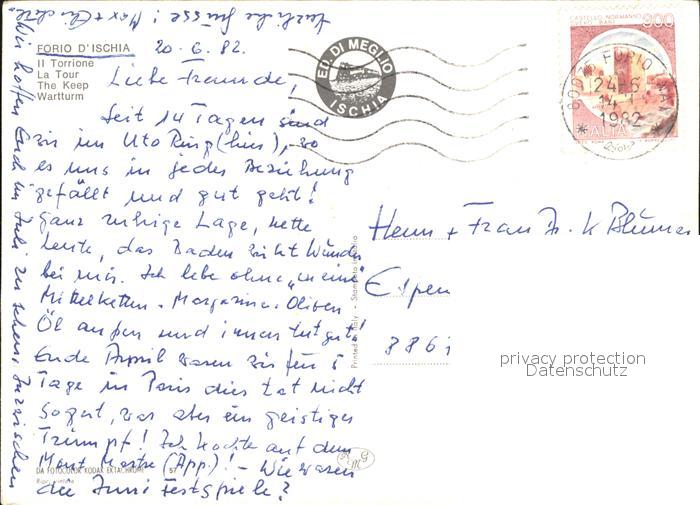 herzliche Grüsse! Max +
FORIO D'ISCHIA
Il Torrione
La Tour
The Keep
Wartturm
20.6.82.
Liebe Freunde,
Seit 14 Tagen sind
wir im
es uns in jeder Beziehung
gefällt und gut geht!
Ganz ruhige Lage, nette
Leute, das Baden wirkt Wunder
bei mir. Ich lebe ohne „meine"
Margarine. Oliven
Öl außen und innen tut gut!
Ende April waren wir für 5
Tage in Paris dies tat nicht
gut, war aber ein geistiger
Trumpf! Ich kochte auf dem
Mont Martre (App.)! - Wie waren
die Juni Festspiele?
Wir hoffen Ende Juli zu sehen, inzwischen
ED. DI MEGLIO
ISCHIA
CASTELLO NORMANNO
SVEVO BARI
300
80075 FORIO (NA)
24-6
1982
ITALIA
Herrn + Frau Dr. K Blumer
8861
Printed in Italy - Stampato in Italia
DA FOTOCOLOR KODAK EKTACHROME
57
privacy protection
Datenschutz